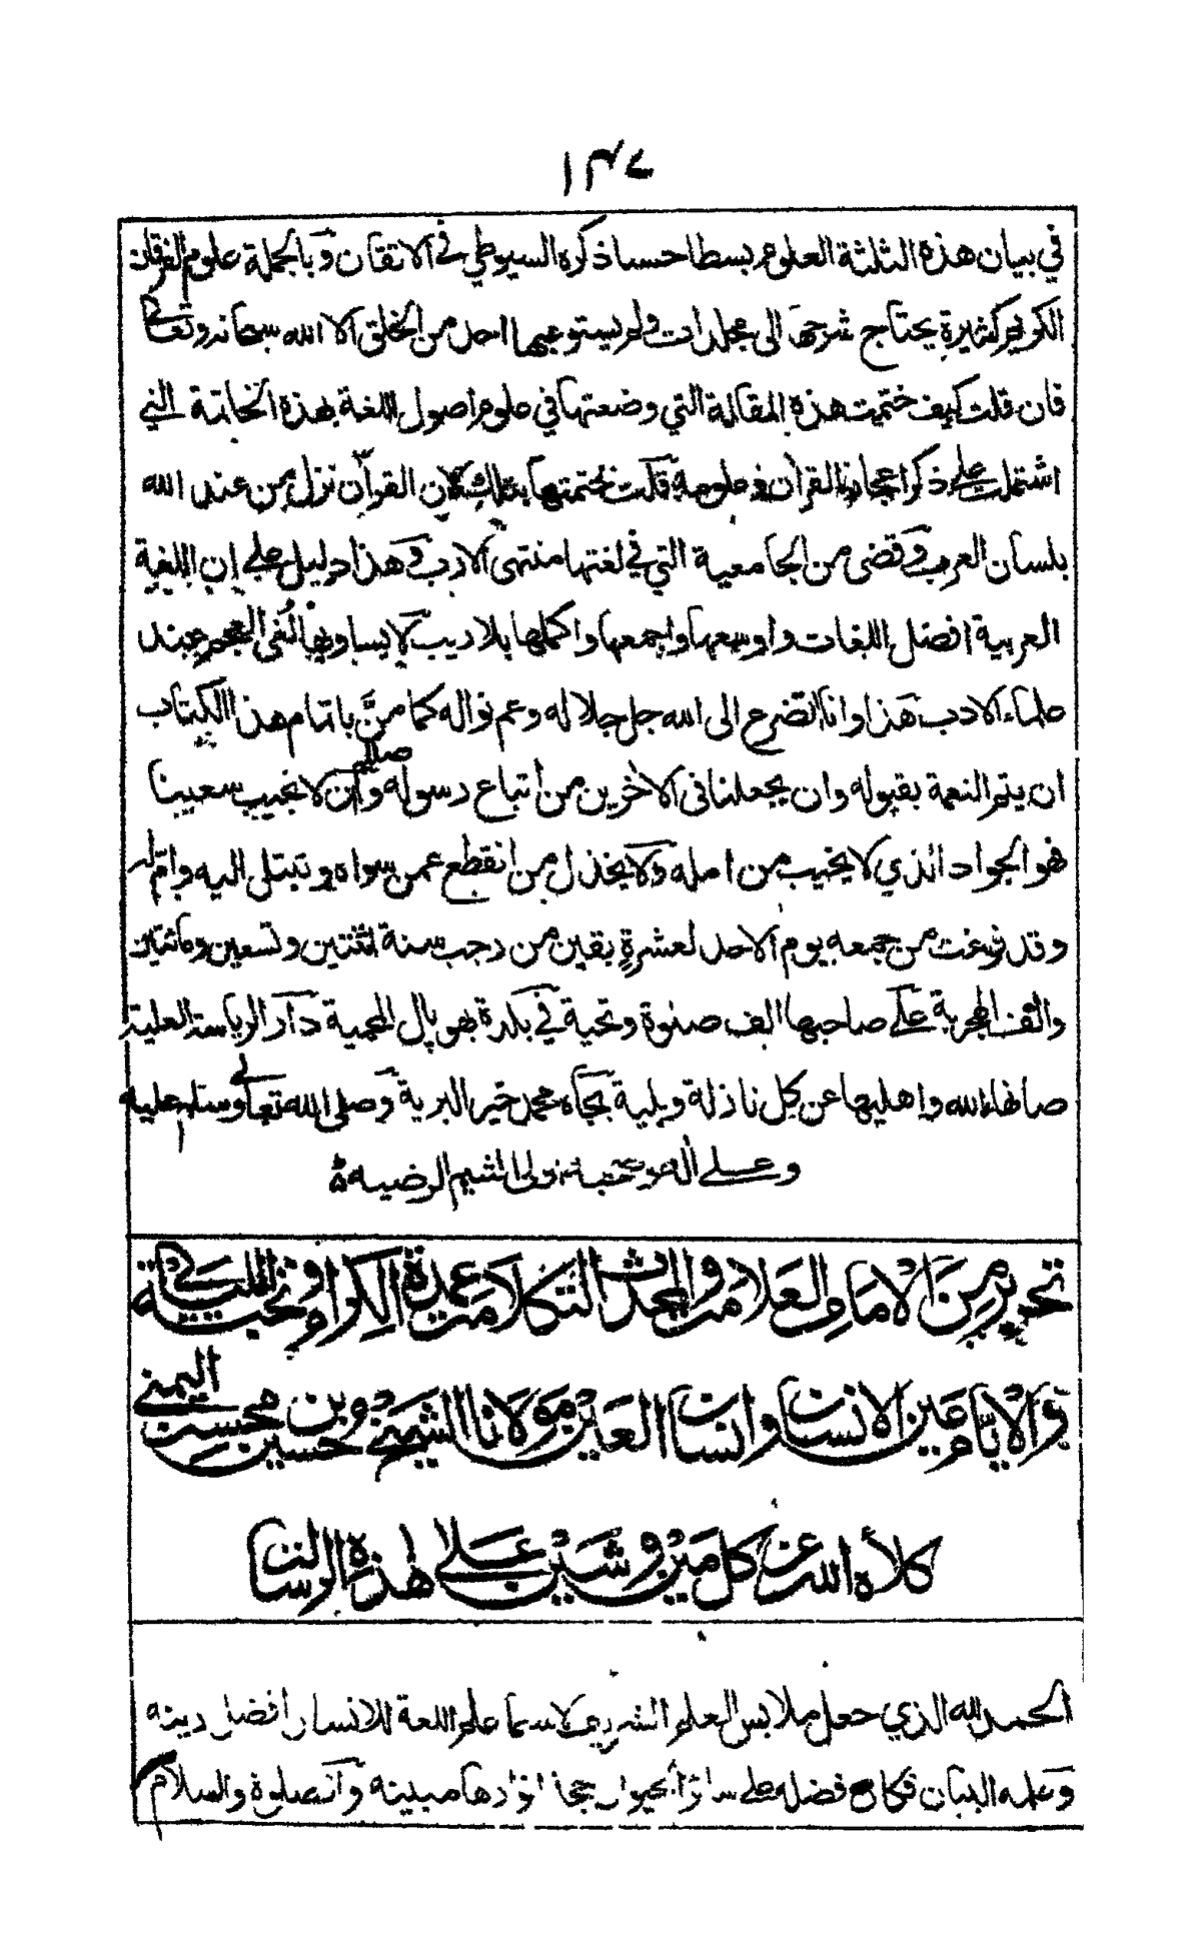 ١٣٧
في بيان هذه الثلثة العلوم بسطا حسنا ذكره السيوطي في الاتقان وبالجملة علوم الفرقان
الكريم كثيرة يحتاج شرحها الى مجلدات ولم يستوعبها احد من الخلق الا الله سبحانه وتعالى
فان قلت كيف ختمت هذه المقالة التي وضعتها في علوم اصول اللغة بهذه الخاتمة التي
اشتملت على ذكر اعجاز القران وعلومه قلت ختمتها بذلك لان القرآن نزل من عند الله
بلسان العرب وقضى من الجامعية التي في لغتها منتهى الارب وهذا دليل على ان اللغة
العربية افضل اللغات واوسعها واجمعها واكملها بلا ريب لا يساويها لغى العجم عند
علماء الادب هذا وانا اتضرع الى الله جل جلاله وعم نواله كما منَّ باتمام هذا الكتاب
ان يتم النعمة بقبوله وان يجعلنا في الاخرين من أتباع رسوله صللم وأن لا يخيب سعينا
فهو الجواد الذي لا يخيب من امله ولا يخذل من انقطع عمن سواه وتبتل اليه وامّ له
وقد فرغت من جمعه يوم الاحد لعشرة بقين من رجب سنة اثنتين وتسعين ومائتين
والف الهجرية على صاحبها الف صلوة وتحية في بلدة بهوپال المحمية دار الرياسة العلية
صانها الله واهليها عن كل نازلة وبلية بجاه محمد خير البرية وصلى الله تعالى وسلم عليه
وعلى اله وصحبه اولى الشيم الرضيه
تحرير من الامام العلامة والمحدث التكلامة عمدة الكرام ونخبة الليالي
والايام عين الانسان وانسان العين مولانا الشيخ حسين بن محسن اليمني
كلأه الله عن كل مين وشين على هذه الرسالة
الحمد لله الذي جعل ملابس العلم الشريف لا سيما علم اللغة للانسان افضل زينه
وعلمه البيان فكان فضله على سائر الحيوان انوارها مبينه والصلوة والسلام